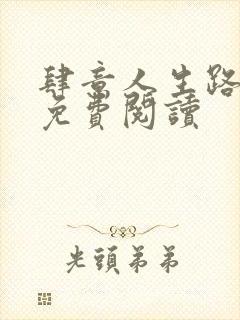 肆意人生路
免費閱讀
光頭弟弟